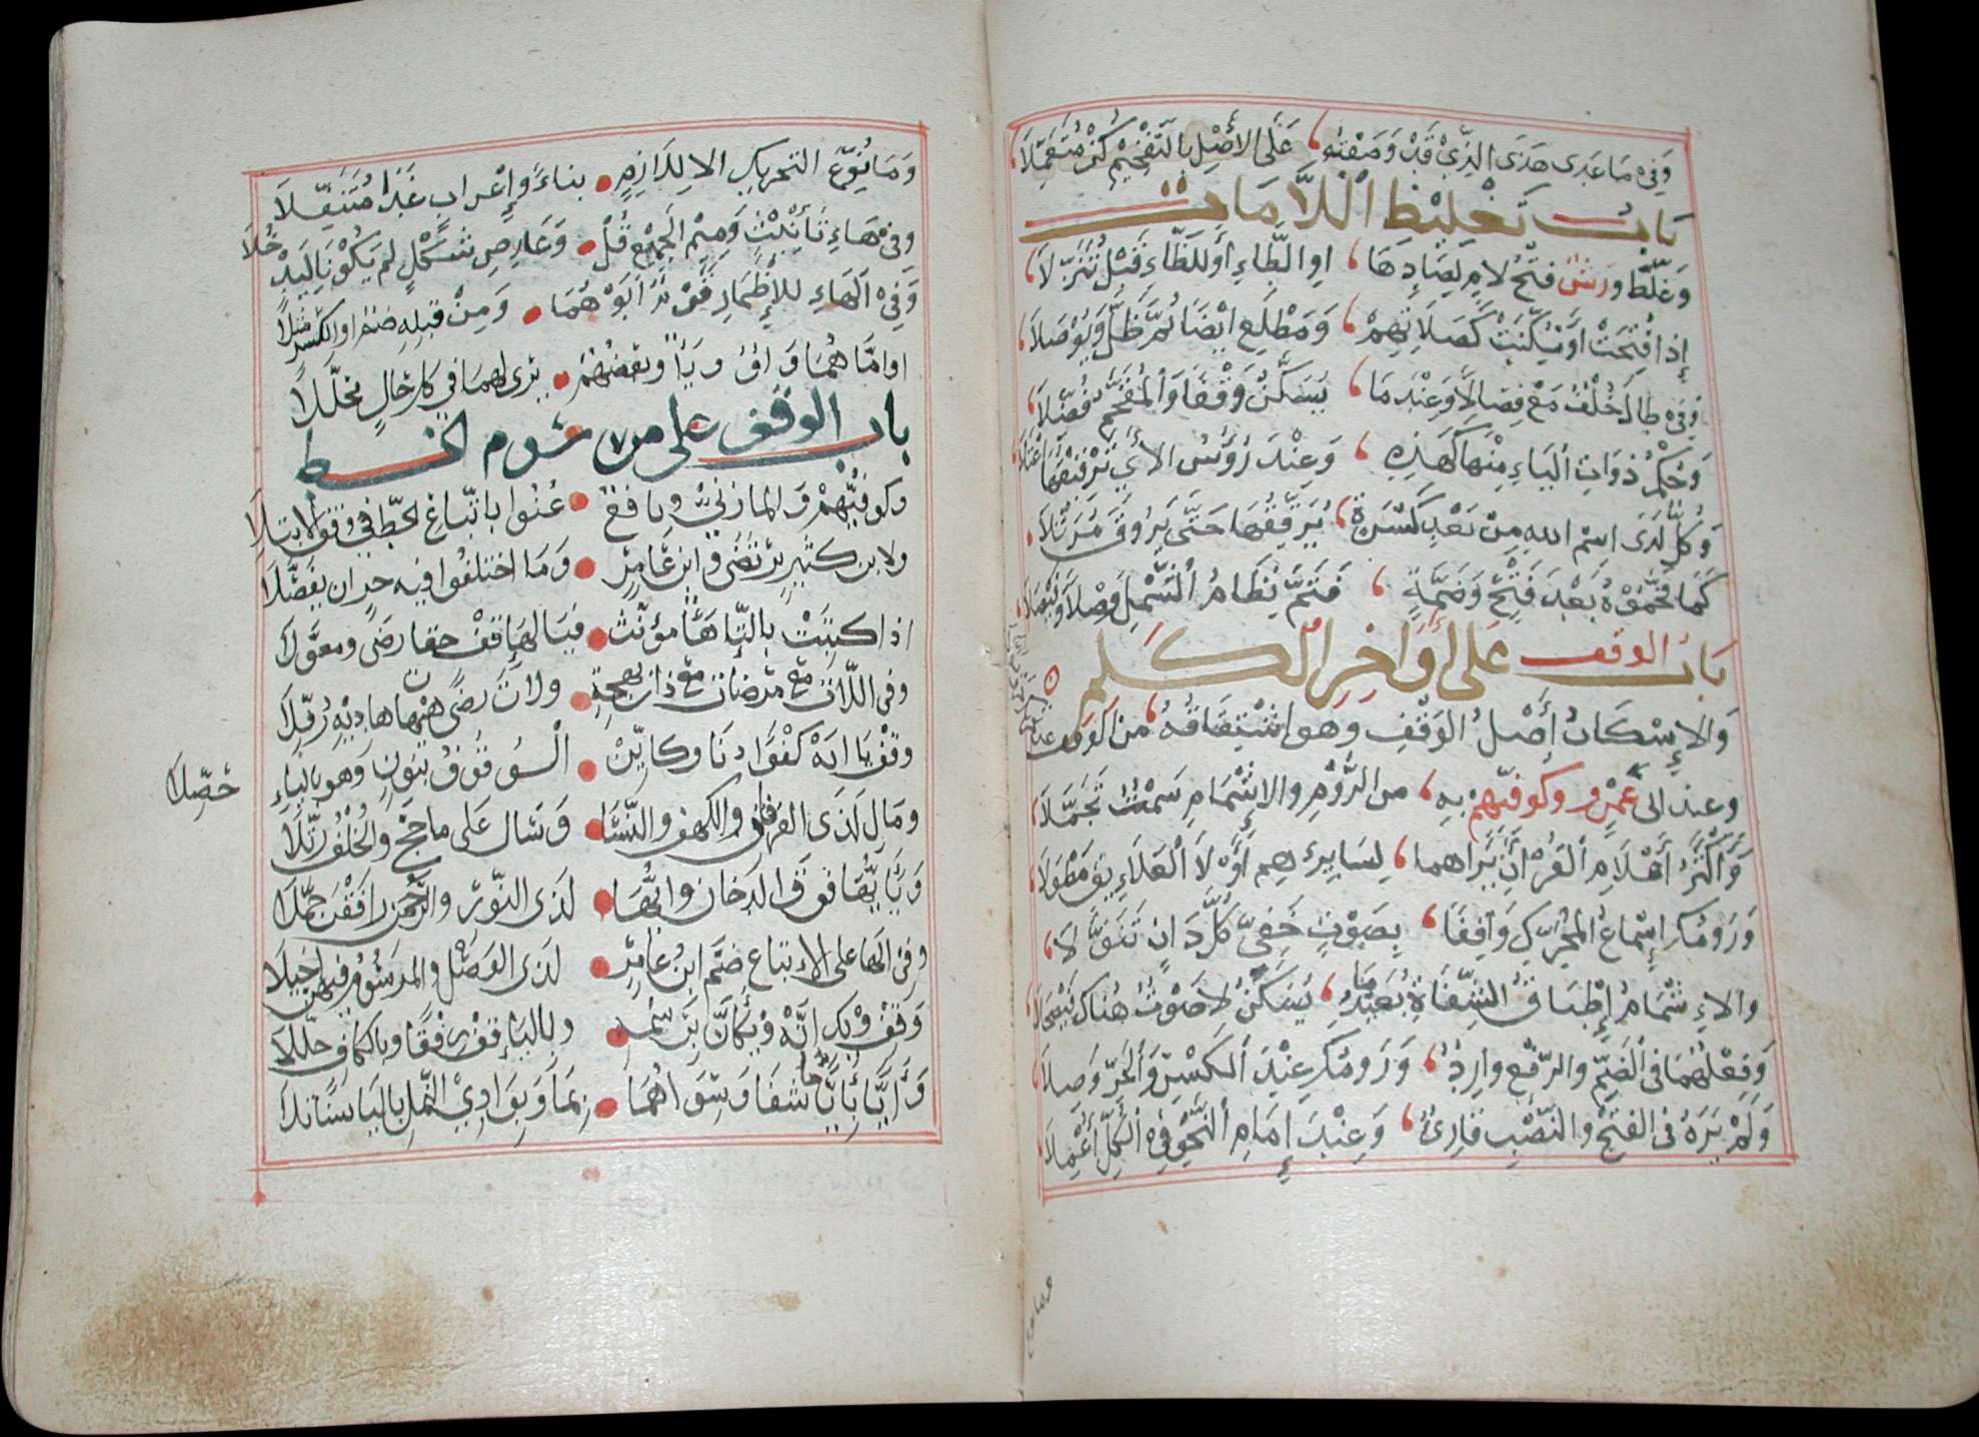 وَفِي مَا عَدَى هَذَى الَّذِي قَدْ وَصَفْتُهُ عَلَى الأَصْلِ بِالتَّفْخِيمِ كُنْ مُتَعَمِّلَا
بَابُ تَغْلِيظِ اللَّامَاتِ
وَغَلَّظَ وَرْشٌ فَتْحَ لَامٍ لِصَادِهَا اوِ الطَّاءِ أَوْ لِلظَّاءِ قَبْلُ تَنَزُّلَا
إِذَا فُتِحَتْ اَوْ سُكِّنَتْ كَصَلَاتِهِمْ وَمَطْلَعِ ايْضًا ثُمَّ ظَلَّ وَيُوصَلَا
وَفِي طَالَ خُلْفٌ مَعْ فِصَالًا وَعِنْدَ مَا يُسَكَّنُ وَقْفًا وَالْمُفَخَّمُ فُضِّلَا
وَحُكْمُ ذَوَاتِ الْيَاءِ مِنْهَا كَهَذِهِ وَعِنْدَ رُؤُسِ الأَيِ تَرْقِيقُهَا اعْتَلَا
وَكُلٌّ لَدَى اسْمِ اللهِ مِنْ بَعْدِ كَسْرَةٍ يُرَقِّقُهَا حَتَّى يَرُوقَ مُرَتَّلَا
كَمَا فَخَّمُوهُ بَعْدَ فَتْحٍ وَضَمَّةٍ فَتَمَّ نِظَامُ الشَّمْلِ وَصْلًا وَفَيْصَلَا
بَابُ الوقف عَلَى أَوَاخِرِ الْكَلِم
وَالإِسْكَانُ أَصْلُ الوَقْفِ وَهو اشْتِقَاقُهُ مِنَ الوَقْف
وعند ابى عَمْرٍو وكوفِيّهِمْ بِهِ من الرَّوْمِ والإشْمَامِ سَمْتٌ تَجَمَّلَا
وَأَكْثَرُ أَعْلَامِ الْقُرَانِ يَرَاهما لِسَايِرِهِم أَوْلَا الْعَلَايِقِ مِطْوَلَا
وَرَوْمُكَ إِسْمَاعُ الْمُحَرَّكِ وَاقِفًا بِصَوْتٍ خَفِيٍّ كُلَّ دَانٍ تَنَوَّلَا
والاِشْمَامُ إِطْبَاقُ الشِّفَاهِ بُعَيْدَ مَا يُسَكَّنُ لَا صَوْتٌ هُنَاكَ فَيَصْحَلَا
وَفِعْلُهُمَا فِي الضَّمِّ والرَّفْعِ وَارِدٌ وَرَوْمُكَ عِنْدَ الْكَسْرِ وَالْجَرِّ وَصلَا
وَلَمْ يَرَهُ فِى الفَتْحِ والنَّصْبِ قَارِئٌ وَعِنْدَ إِمَامِ النَّحْوِ فِي الْكُلِّ أُعْمِلَا
وَمَا نُوِّعَ التحريك الا لِلَازِمٍ بِنَاءً وإِعْرَابٍ غَدَا مُتَنَقِّلَا
وفي هَاءِ تَأْنِيْثٍ وَمِيْمِ الْجَمِيْعِ قُلْ وَعَارِضِ شَكْلٍ لَمْ يَكُوْنَا لِيَدْخُلَا
وَفِي الْهَاءِ للإضْمَارِ قَوْمٌ أَبَوْهُمَا وَمِنْ قَبْلِهِ ضَمٌّ اوِ الْكَسْرُ مُثِّلَا
اوامَّاهُمَا وَاوٌ وَيَاءٌ وَبَعْضُهُمْ يَرَى لَهمَا فِي كل حَالٍ مُحَلَّلَا
باب الوقف على مرسوم الخط
وكوفِيُّهُمْ وَالمازِنِيُّ وَنَافِعٌ عُنُوا باتِّبَاعِ الخَطِّ فِي وَقْفِ الابتلَا
ولابن كثيرٍ يُرْتَضَى وابنِ عَامِرٍ وَمَا اختلفوا فِيهِ حَرٍ ان يُفَصَّلَا
اذا كُتِبَتْ بالتَّا هَاءُ مؤَنّث فبالهَا قِفْ حقا رِضًى ومعوَّلَا
وفى اللّاتَ مَعْ مَرْضَاتَ مَعْ ذَاتَ بهجةٍ ولَاتَ رِضًى هَيْهَاتَ هَادِيْهِ رُفِّلَا
وقفْ يَا ابَهْ كُفْؤًا دَنَا وكَايِّنْ الْوُقُوفُ بِنُونٍ وَهو بِالْيَاءِ
حُصِّلَا
وَمَالِ لَدَى الفرقان والكهف والنِّسَا وَسَالَ عَلَى مَا حَجَّ وَالْخُلْفُ رُتِّلَا
وَيَا أَيُّهَا فَوْقَ الدُّخَانِ وَايُّهَا لَدَى النّورِ والرَّحْمَنِ رَافَقْنَ حُمَّلَا
وفى الْهَا عَلَى الاِتباع ضَمَّ ابنُ عَامِرٍ لَدَى الوَصْلِ والْمَرْسُوْمُ فِيهِنَّ اخيلَا
وَقِفْ وَيْكَأَنَّهْ وَيْكَأَنَّ بِرَسْمِهِ وبِاليَاءِ قِفْ رِفْقًا وبالكَافِ حُلِّلَا
وَأَيًّا بِأَيًّا مَّا شَفَا وَسِوَاهُمَا بِمَا وَبِوَادِي النَّمْلِ بِاليَا سَنًا تَلَا